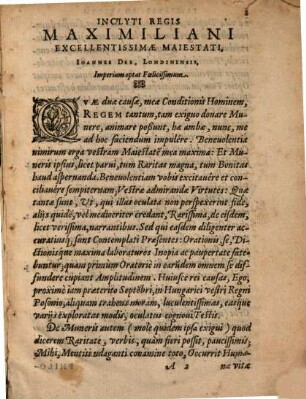 INCLYTI REGIS
MAXIMILIANI
EXCELLENTISSIMÆ MAIESTATI,
IOANNES DEE, LONDINENSIS,
Imperium optat Fœlicissimum.
QVÆ duæ causæ, meæ Conditionis Hominem,
REGEM tantum, tam exiguo donare Mu-
nere, animare poßunt, hæ ambæ, nunc, me
ad hoc faciendum impulêre. Beneuolentia
nimirum erga vestram Maiestatẽ mea maxima: Et Mu-
neris ipsius, licet parui, tum Raritas magna, tum Bonitas
haud aspernanda. Beneuolentiam vobis excitauêre et con-
ciliauêre sempiternam, Vestræ admirandæ Virtutes: Quæ
tantæ sunt, Vt, qui illas oculatâ non perspexerint fide,
alijs quidẽ, vel mediocriter credant, Rarissima, de eisdem,
licet verissima, narrantibus. Sed qui easdem diligenter ac
accuratiusq́, sunt Contemplati Præsentes: Orationis se, Di-
ctionisq́ue maxima laboraturos Inopia ac paupertate fate-
buntur, quam primùm Oratoris in earũdem omnem se dif-
fundere cupiant Amplitudinem. Huiusce rei causas, Ego,
proximè iam præterito Septẽbri, in Hungarici vestri Regni
Posonio, aliquam trahens moram, luculentissimas, easq́ue
varijs exploratas modis, oculatus cognoui Testis.
De Muneris autem (mole quidem ipsa exigui) quod
dicerem Raritate, verbis, quàm fieri possit, paucissimis,
Mihi, Mentis indaganti conamine toto, Occurrit Huma-
A 2 næ vitæ